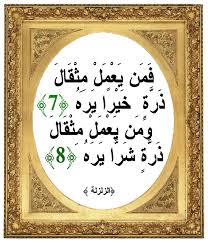 فَمَن يَعْمَلْ مِثْقَالَ
ذَرَّةٍ خَيْرًا يَرَهُ ﴿7﴾
وَمَن يَعْمَلْ مِثْقَالَ
ذَرَّةٍ شَرًّا يَرَهُ ﴿8﴾
﴿الزلزلة﴾